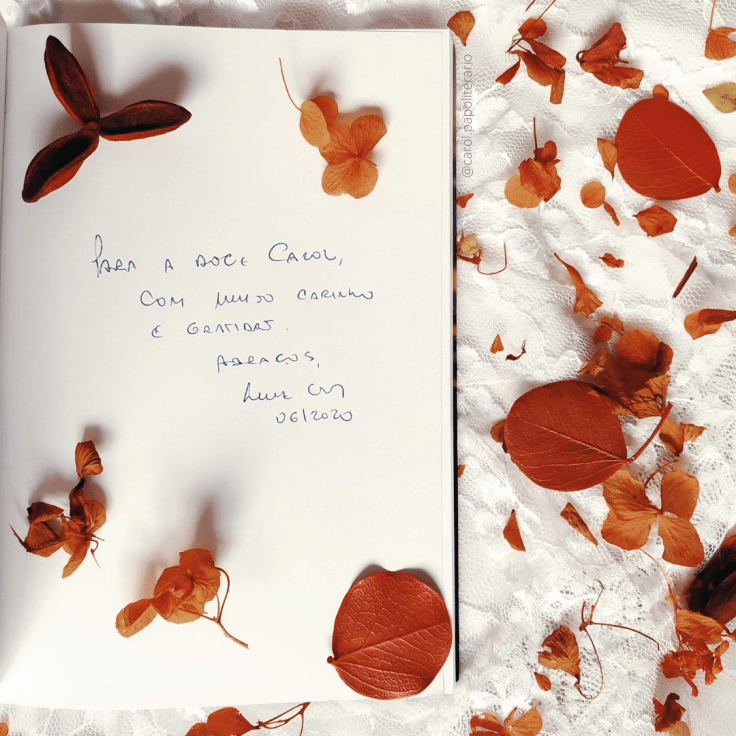 Para a doce Carol,
com muito carinho
e gratidão.
Abraços,
Luiz
06/2020
@carol.papoliterario